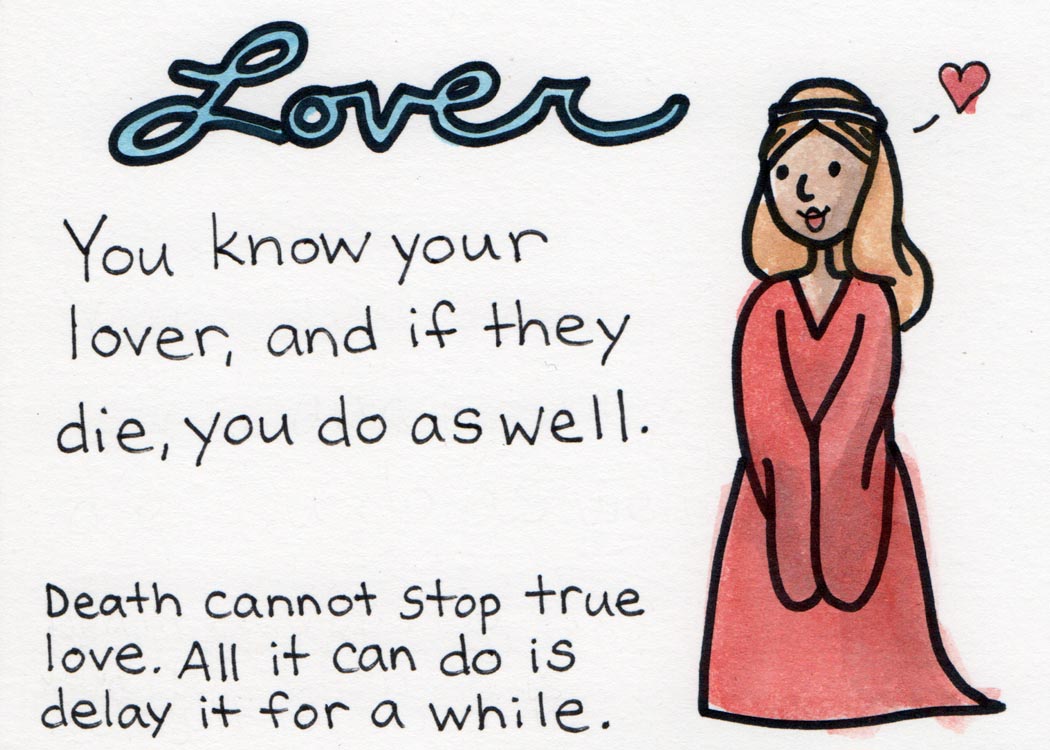 Lover
You know your
lover, and if they
die, you do as well.
Death cannot stop true
love. All it can do is
delay it for a while.